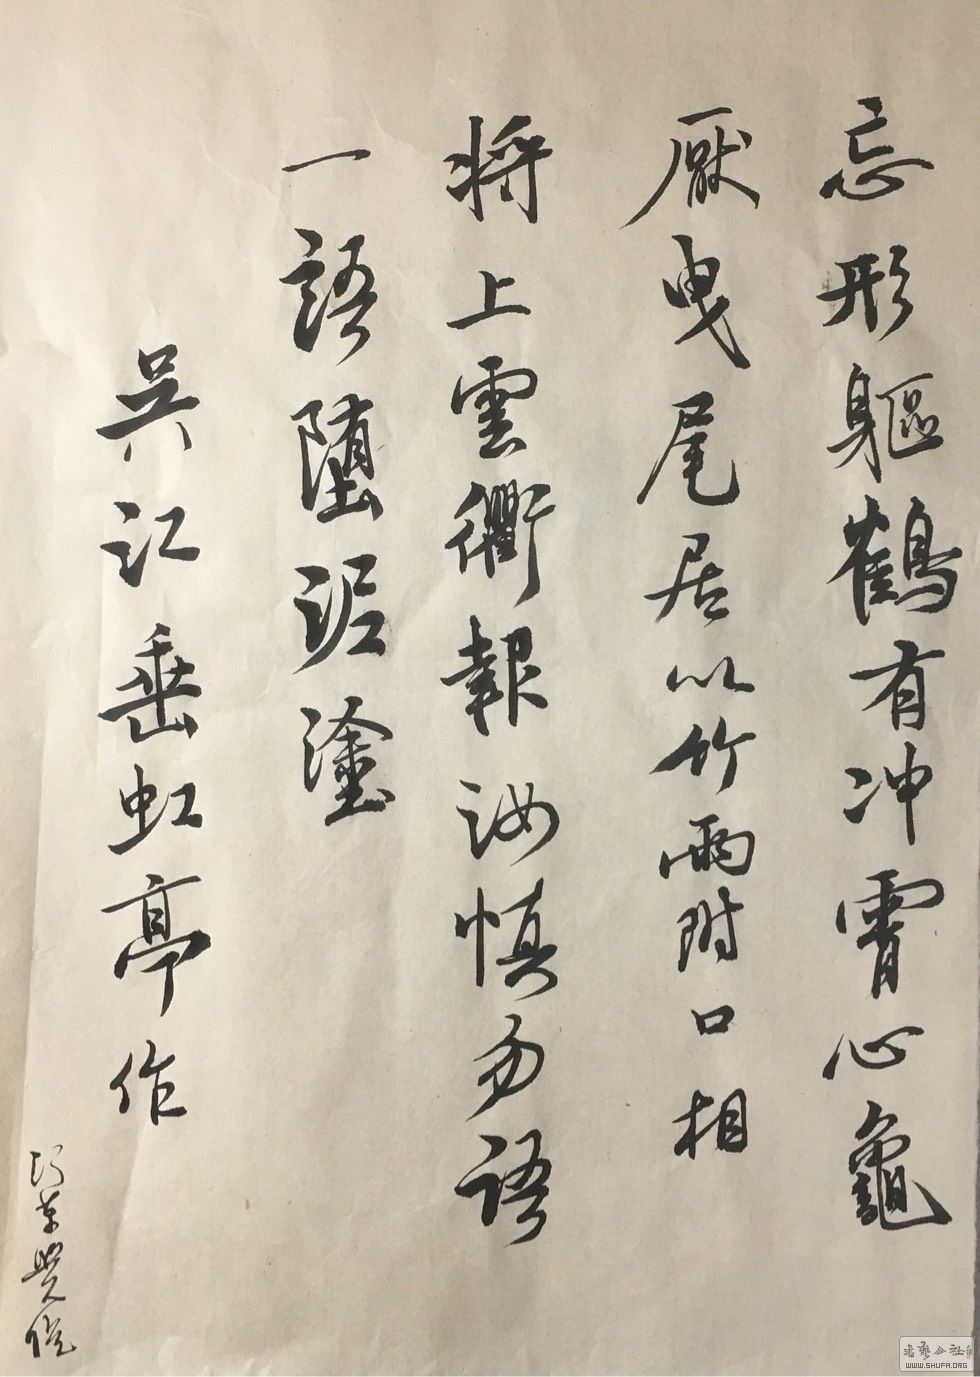 忘形軀鶴有冲霄心龜
厭曳尾居以竹兩附口相
將上雲衢報汝慎勿語
一語墮泥塗
吳江垂虹亭作
WWW.SHUFA.ORG